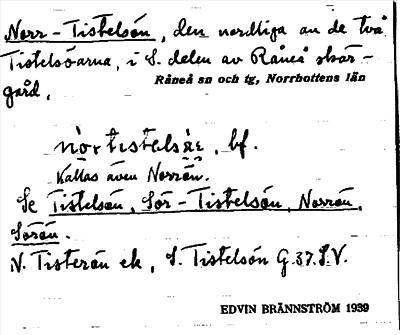 Norr-Tistelsön, den nordliga av de två
Tistelsöarna, i S. delen av Råneå skär-
gård.
Råneå sn och tg, Norrbottens län
bf.
Kallas även Norrön.
Se Tistelsön, Sör-Tistelsön, Norrön,
Sörön.
N. Tisterön ek, S. Tistelsön G.37.S.V.
EDVIN BRÄNNSTRÖM 1939